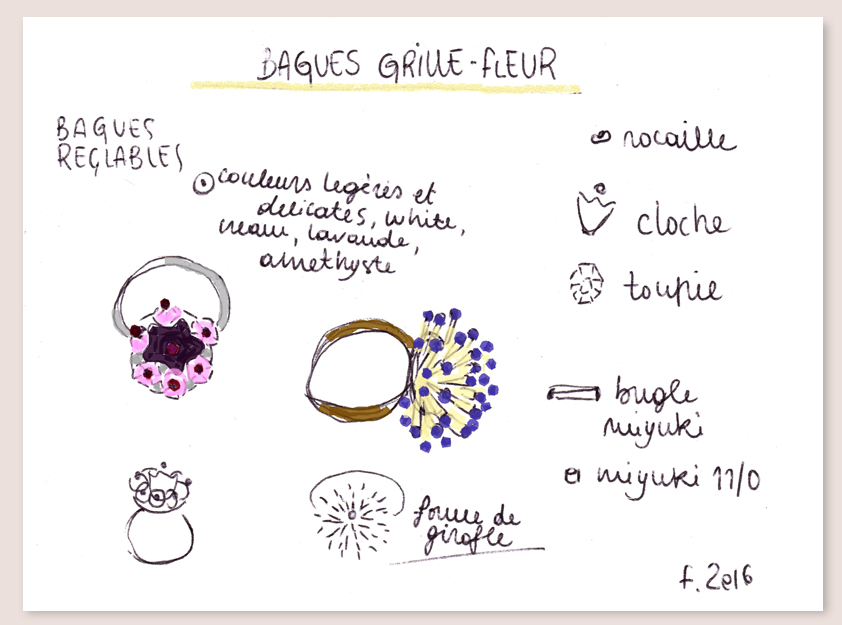 BAGUES GRILLE-FLEUR
BAGUES
REGLABLES
couleurs legères et
délicates, white,
lavande,
améthyste
rocaille
cloche
toupie
bugle
miyuki
miyuki 11/0
forme de
girofle
f. 2016